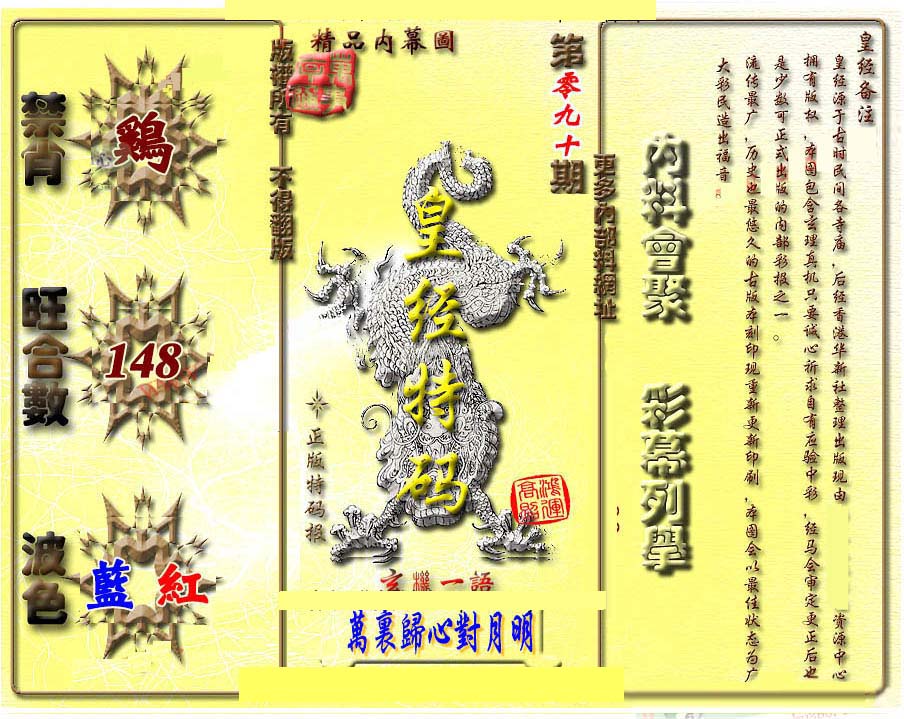 皇经备注
皇经源于古时民间各寺庙，后经香港华新社整理出版现由
资源中心
拥有版权，本图包含玄理真机只要诚心祈求自有应验中彩，经马会审定更正后也
是少数可正式出版的内部彩报之一。
流传最广，历史也最悠久的古版本刻印现重新更新印刷，本图会以最佳状态为广
大彩民造出福音
內料會聚
彩幕列舉
更多內部料網址
第零九十期
精品内幕圖
皇经特码
正版特码报
鴻運
高照
玄機一語
萬裏歸心對月明
版權所有 不得翻版
禁肖
鷄
旺合數
148
波色
藍 紅